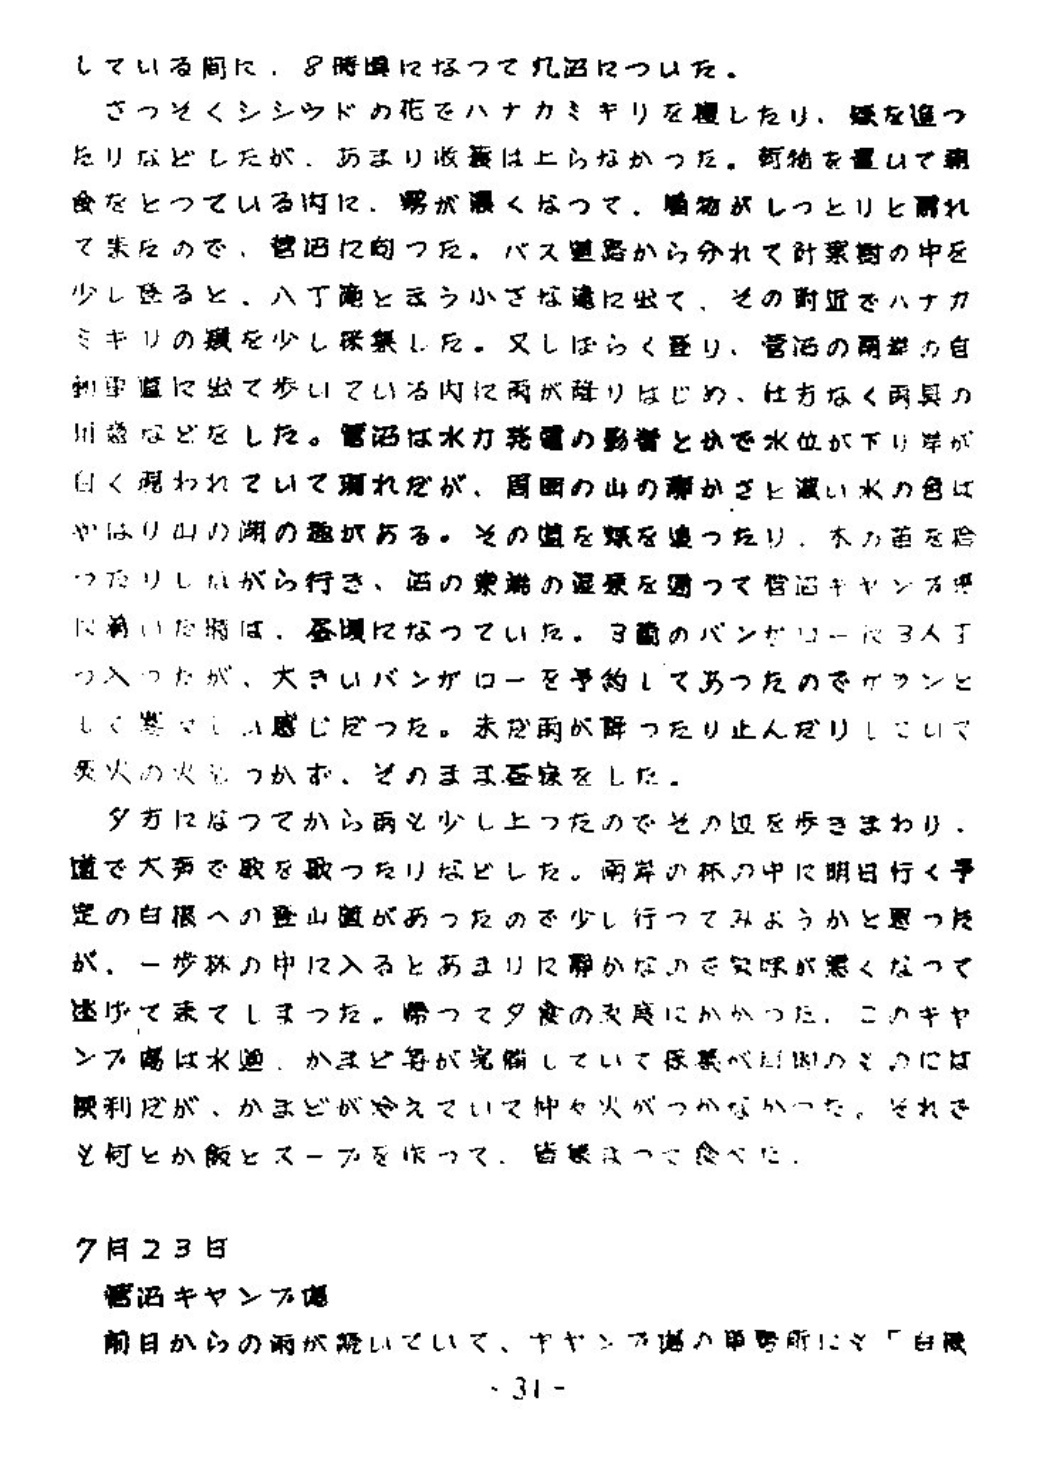 している間に、8時頃になつて丸沼についた。
さつそくシシウドの花でハナカミキリを獲したり、蝶を追つ
たりなどしたが、あまり收養は上らなかつた。荷物を置いて朝
食をとつている内に、霧が濃くなつて、植物がしつとりと濡れ
て来たので、菅沼に向つた。バス道路から分れて針葉樹の中を
少し登ると、八丁滝と云う小さな滝に出て、その附近でハナカ
ミキリの類を少し採集した。又しばらく登り、菅沼の南岸の自
動車道に出て歩いている内に雨が降りはじめ、仕方なく雨具の
用意などをした。菅沼は水力発電の影響とかで水位が下り岸が
白く現われていて荒れだが、周囲の山の静かさと濃い水の色は
やはり山の湖の趣がある。その道を蝶を追つたり、木の苗を拾
つたりしながら行き、沼の東端の湿原を通つて菅沼キヤンプ場
に着いた時は、昼頃になつていた。3箇のバンガローに3人ず
つ入つたが、大きいバンガローを予約してあつたのでガランと
して寒々しい感じだつた。未だ雨が降つたり止んだりしていて
炊火の火もつかず、そのまま昼寝をした。
夕方になつてから雨も少し上つたのでその辺を歩きまわり、
道で大声で歌を歌つたりなどした。南岸の林の中に明日行く予
定の白根への登山道があつたので少し行つてみようかと思つた
が、一歩林の中に入るとあまりに静かなので気味が悪くなつて
逃げて来てしまつた。帰つて夕食の支度にかかつた。このキヤ
ンプ場は水道、かまど等が完備していて採集が目的のものには
便利だが、かまどが冷えていて仲々火がつかなかつた。それで
も何とか飯とスープを作つて、皆集まつて食べた。
7月23日
菅沼キヤンプ場
前日からの雨が続いていて、キヤンプ場の事務所にも「白根
- 31 -